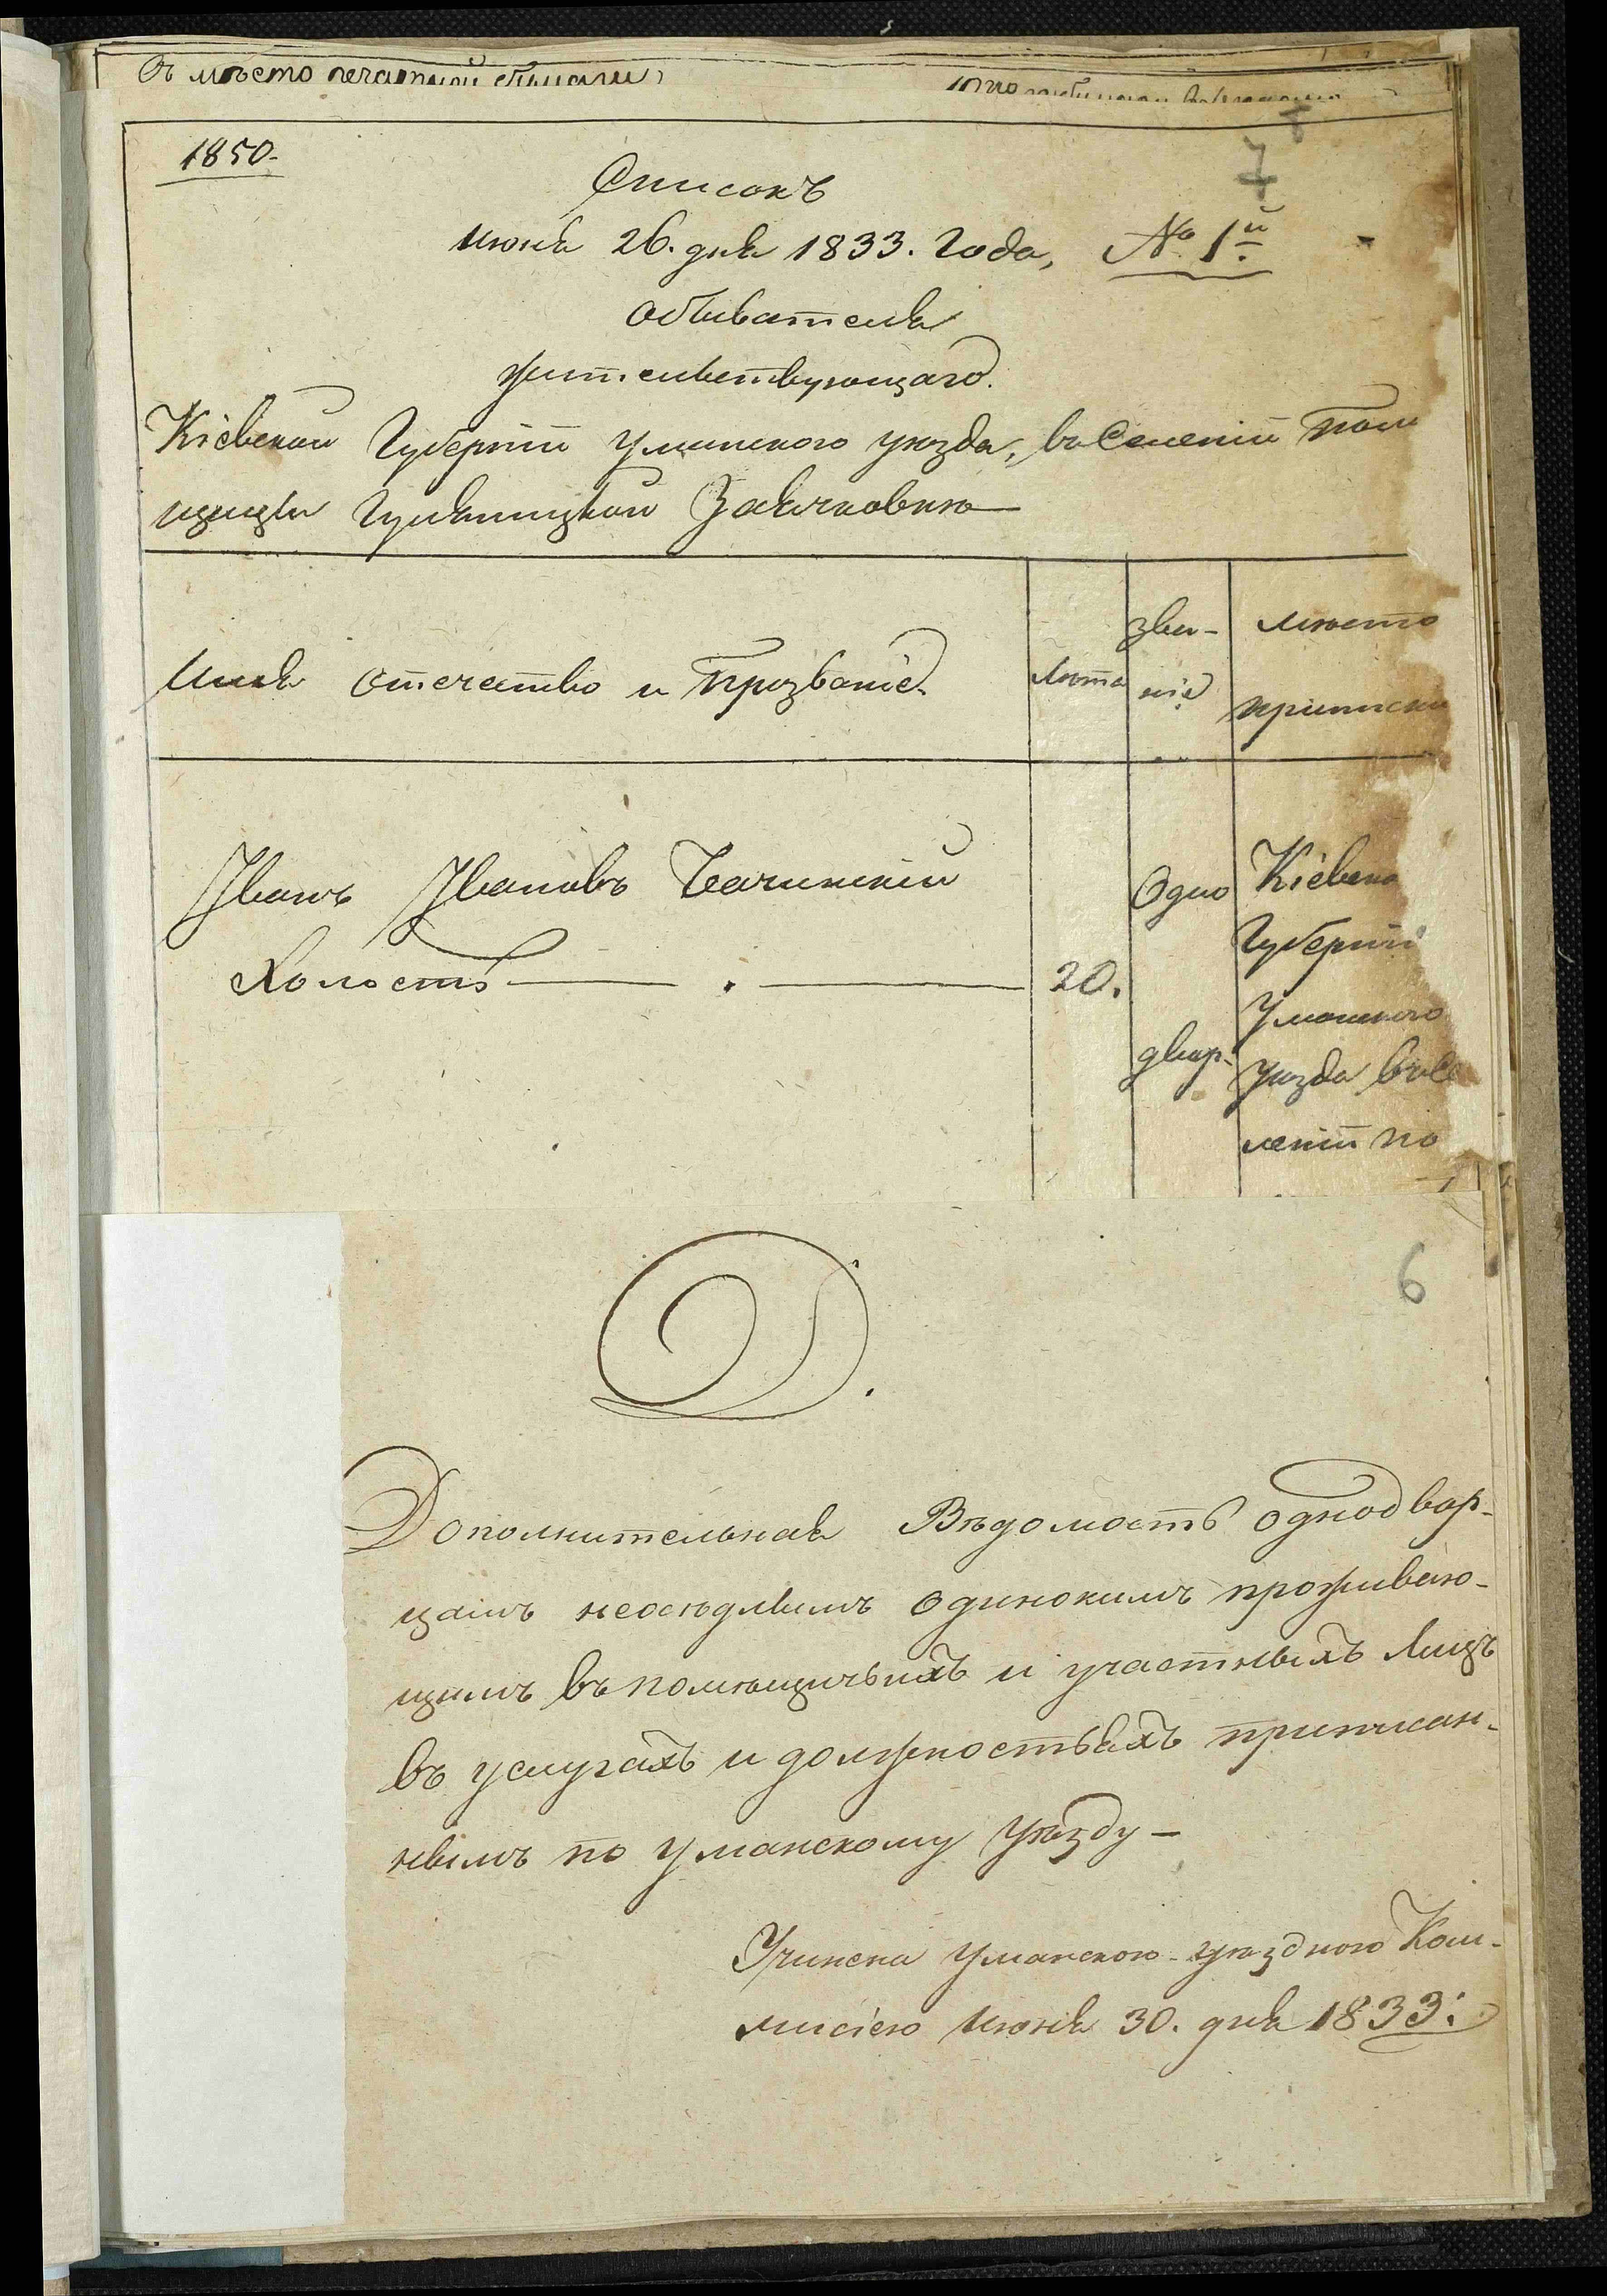 мѣсто печатной
1850.
7
Списокъ
Июня 26. дня 1833. Года, № 1й
обывателя
жительствующаго.
Кіевской Губерніи Уманского уѣзда, в Селеніи Поме
щицы Заячковкѣ
Имя отечество и Прозваніе
Лѣта
зва-
ніе
мѣсто
приписки
Иванъ Ивановъ
Холостъ
20.
Одно
двор.
Кіевско
Губерніи
Уманского
уѣзда в Се
леніи по
6
Д.
Дополнительная Вѣдомость однодвор-
цамъ неосѣдлымъ одинокимъ проживаю-
щимъ въ помѣщичьихъ и участныхъ Лицъ
въ услугахъ и должностяхъ приписан-
нымъ по Уманскому Уѣзду —
Учинена Уманскою уѣздною Ком-
мисіею Июня 30. дня 1833: